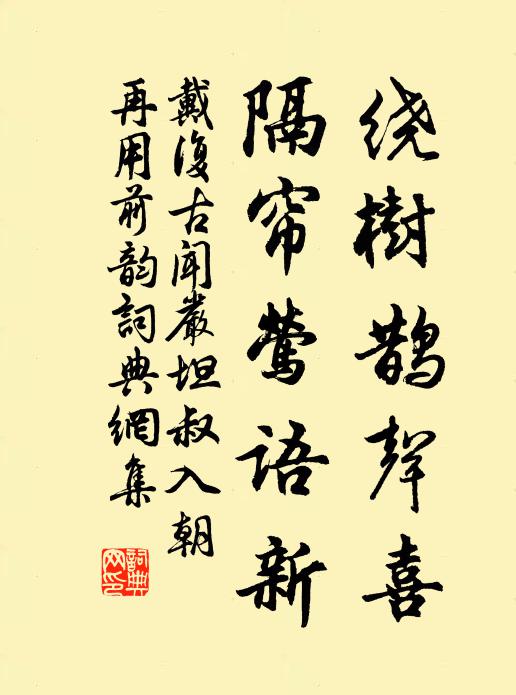 绕樹鹊聲喜
隔帘莺语新
戴復古闻嚴坦叔入朝
再用前韵詞典網集
詞典網印